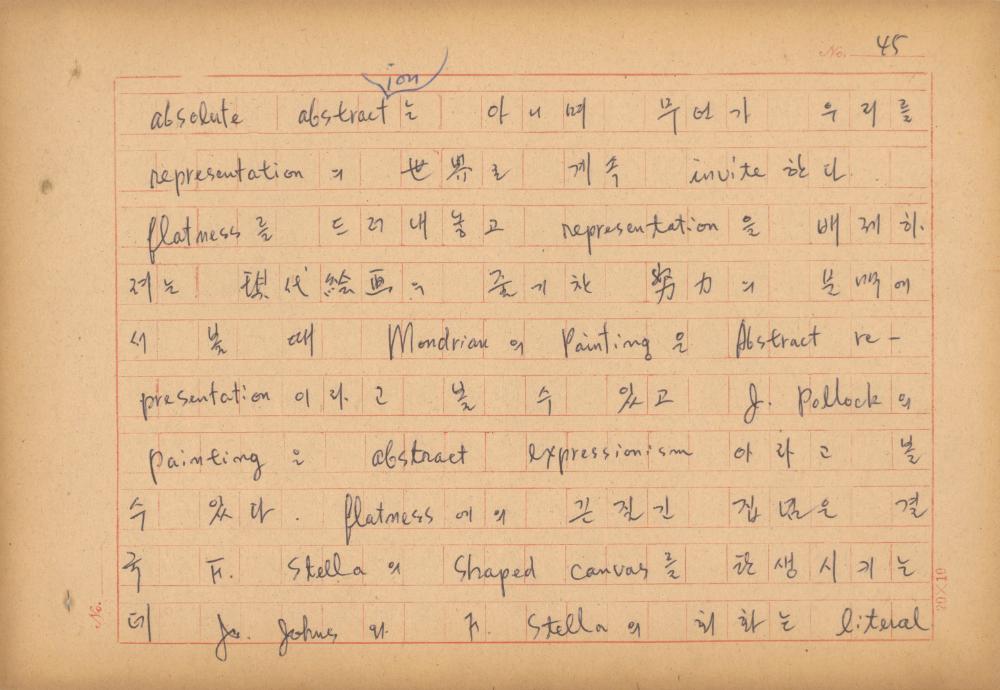 No. 45
ion
absolute abstract는 아니며 무언가 우리를
representation의 世界로 계속 invite한다.
flatness를 드러내놓고 representation을 배제하
려는 現代絵画의 줄기찬 努力의 문맥에
서 볼 때 Mondrian의 Painting은 Abstract re-
presentation이라고 볼 수 있고 J. Pollock의
painting은 abstract expressionism이라고 볼
수 있다. flatness에의 끈질긴 집념은 결
국 F. Stella의 Shaped canvas를 탄생시키는
데 Ja. Johns와 F. Stella의 회화는 literal
No.
20×10